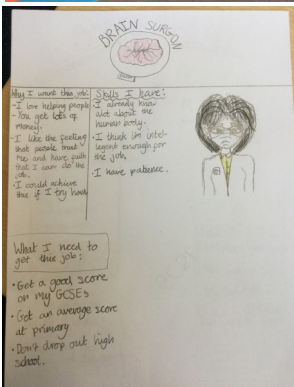 BRAIN SURGON
Why I want this job:
-I love helping people
-You get lots of
money.
-I like the feeling
that people trust
me and have faith
that I can do the
job.
-I could achieve
this if I try hard
Skills I have:
•I already know
alot about the
human body.
•I think im intel-
legent enough for
the job.
•I have patience.
What I need to
get this job:
•Get a good score
on my GCSEs
•Get an average score
at primary
•Don't drop out high
school.